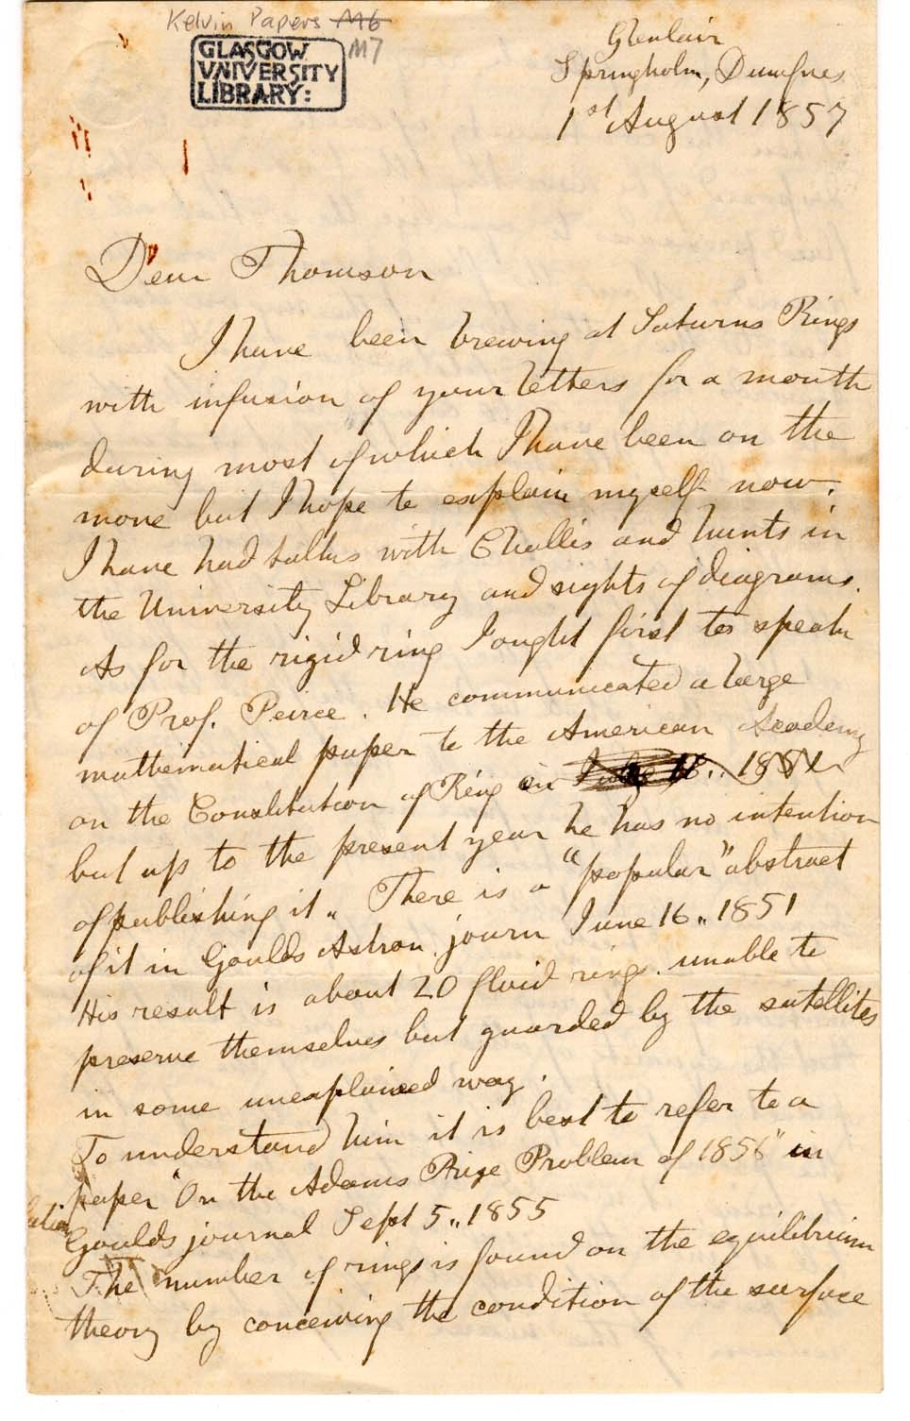 Kelvin Papers M6
M7
GLASGOW
UNIVERSITY
LIBRARY:
Glenlair
Springholm, Dumfries
1st August 1857
Dear Thomson
I have been brewing at Saturns Rings
with infusion of your letters for a month
during most of which I have been on the
move but I hope to explain myself now.
I have had talks with Challis and hunts in
the University Library and sights of diagrams.
As for the rigid ring I ought first to speak
of Prof. Peirce. He communicated a large
mathematical paper to the American Academy
on the Constitution of Ring in 1851
but up to the present year he has no intention
of publishing it. There is a "popular" abstract
of it in Goulds Astron. journ June 16.. 1851
His result is about 20 fluid rings. unable to
preserve themselves but guarded by the satellites
in some unexplained way.
To understand him it is best to refer to a
paper "On the Adams Prize Problem of 1856" in
Goulds journal Sept 5.. 1855
The number of rings is found on the equilibrium
theory by conceiving the condition of the surface